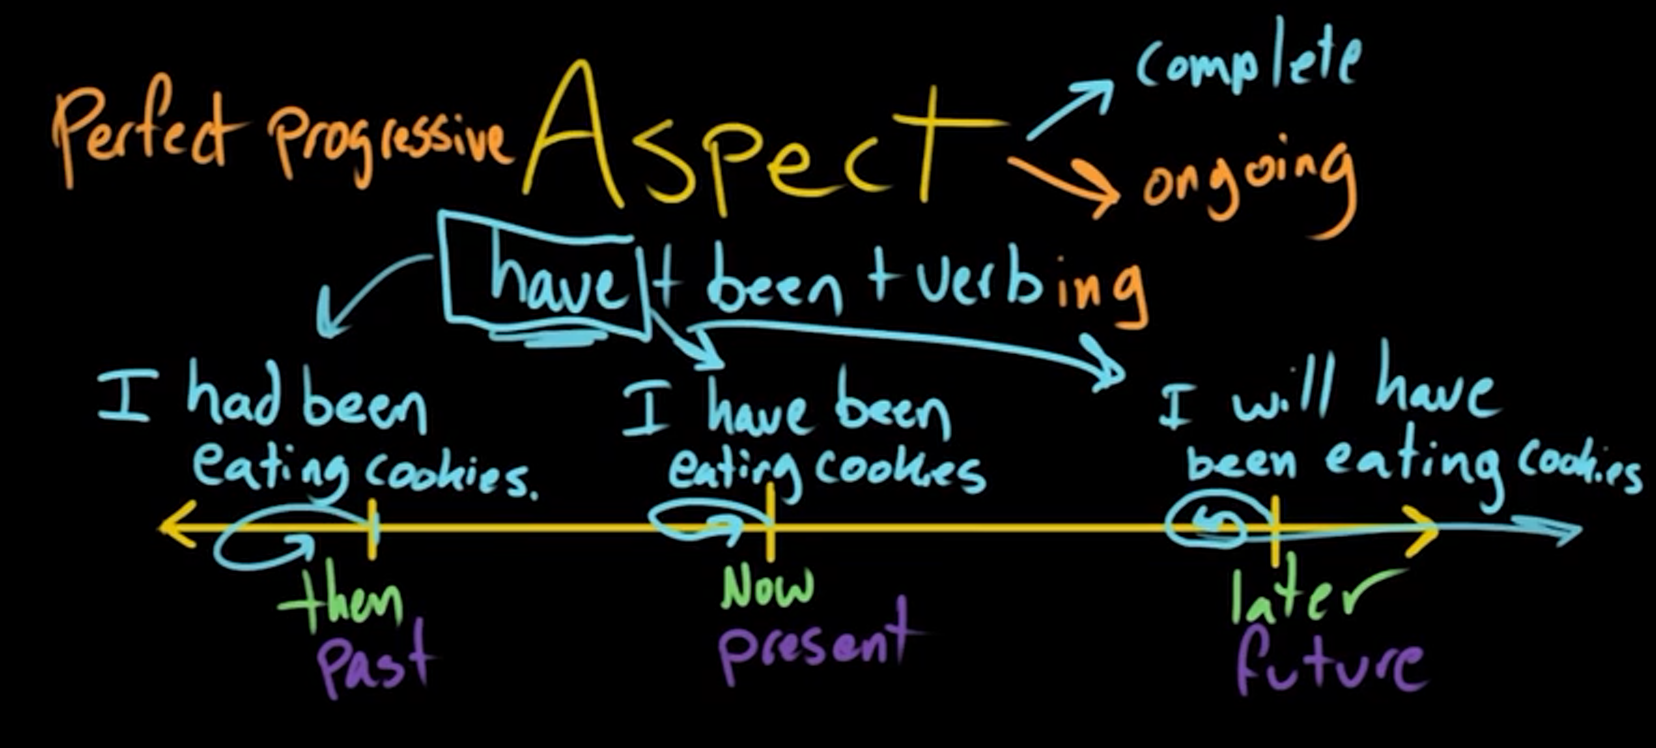 Perfect progressive Aspect
complete
ongoing
have + been + verbing
I had been
eating cookies.
I have been
eating cookies
I will have
been eating cookies
then
past
Now
present
later
future